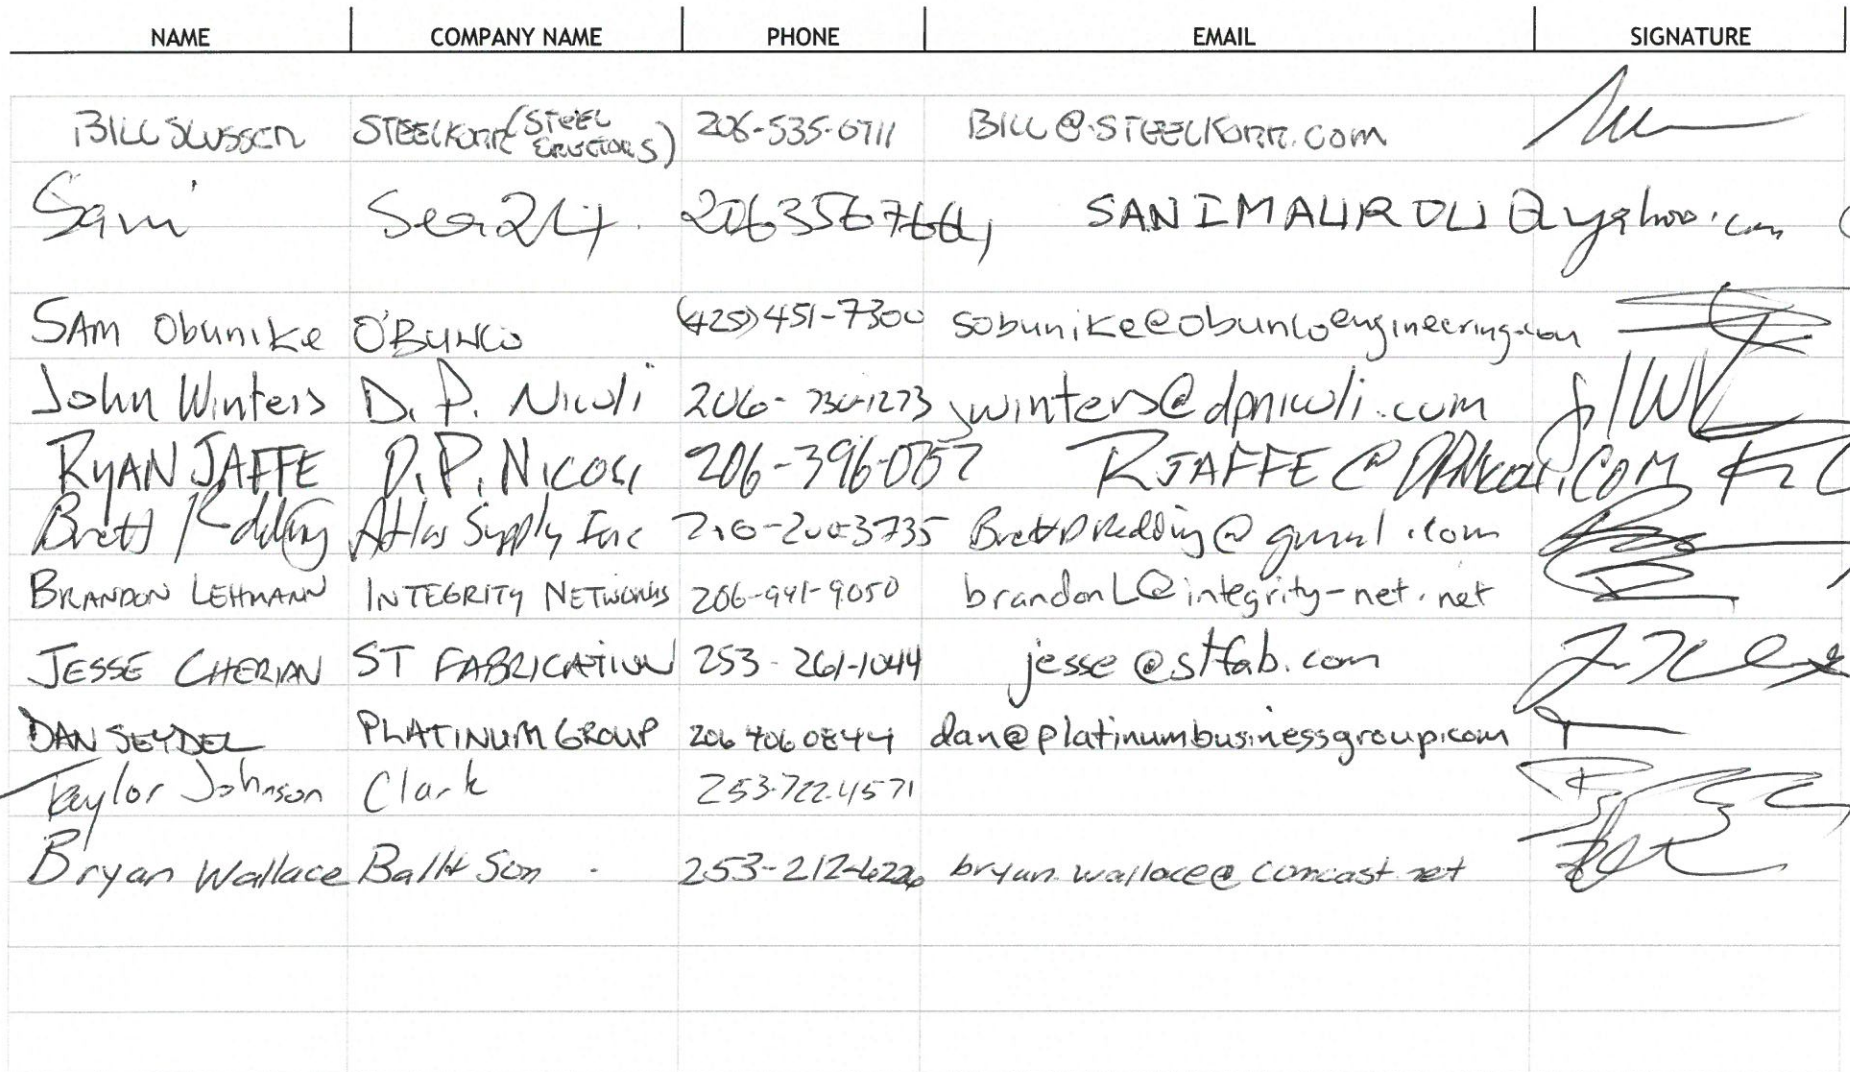 NAME COMPANY NAME PHONE EMAIL SIGNATURE
BILL SLUSSER STEELKORR (STEEL ERECTORS) 206-535-6711 BILL@STEELKORR.COM
Sani Sea24 SANIMAUROLI@yahoo.com
SAM Obunike O'BUNCO (425) 451-7300 sobunike@obuncoengineering.com
John Winters D. P. Nicoli 206-730-1273 jwinters@dpnicoli.com
RYAN JAFFE D.P. NICOLI 206-396-0757 RJAFFE@DPNICOLI.COM
Brett Redding Atlas Supply Inc BrettDRedding@gmail.com
BRANDON LEHMANN INTEGRITY NETWORKS 206-941-9050 brandonL@integrity-net.net
JESSE CHERIAN ST FABRICATION 253-261-1044 jesse@stfab.com
DAN SEYDEL PLATINUM GROUP 206 406 0844 dan@platinumbusinessgroup.com
Taylor Johnson Clark 253-722-4571
Bryan Wallace Son 253-212-6226 bryan.wallace@comcast.net